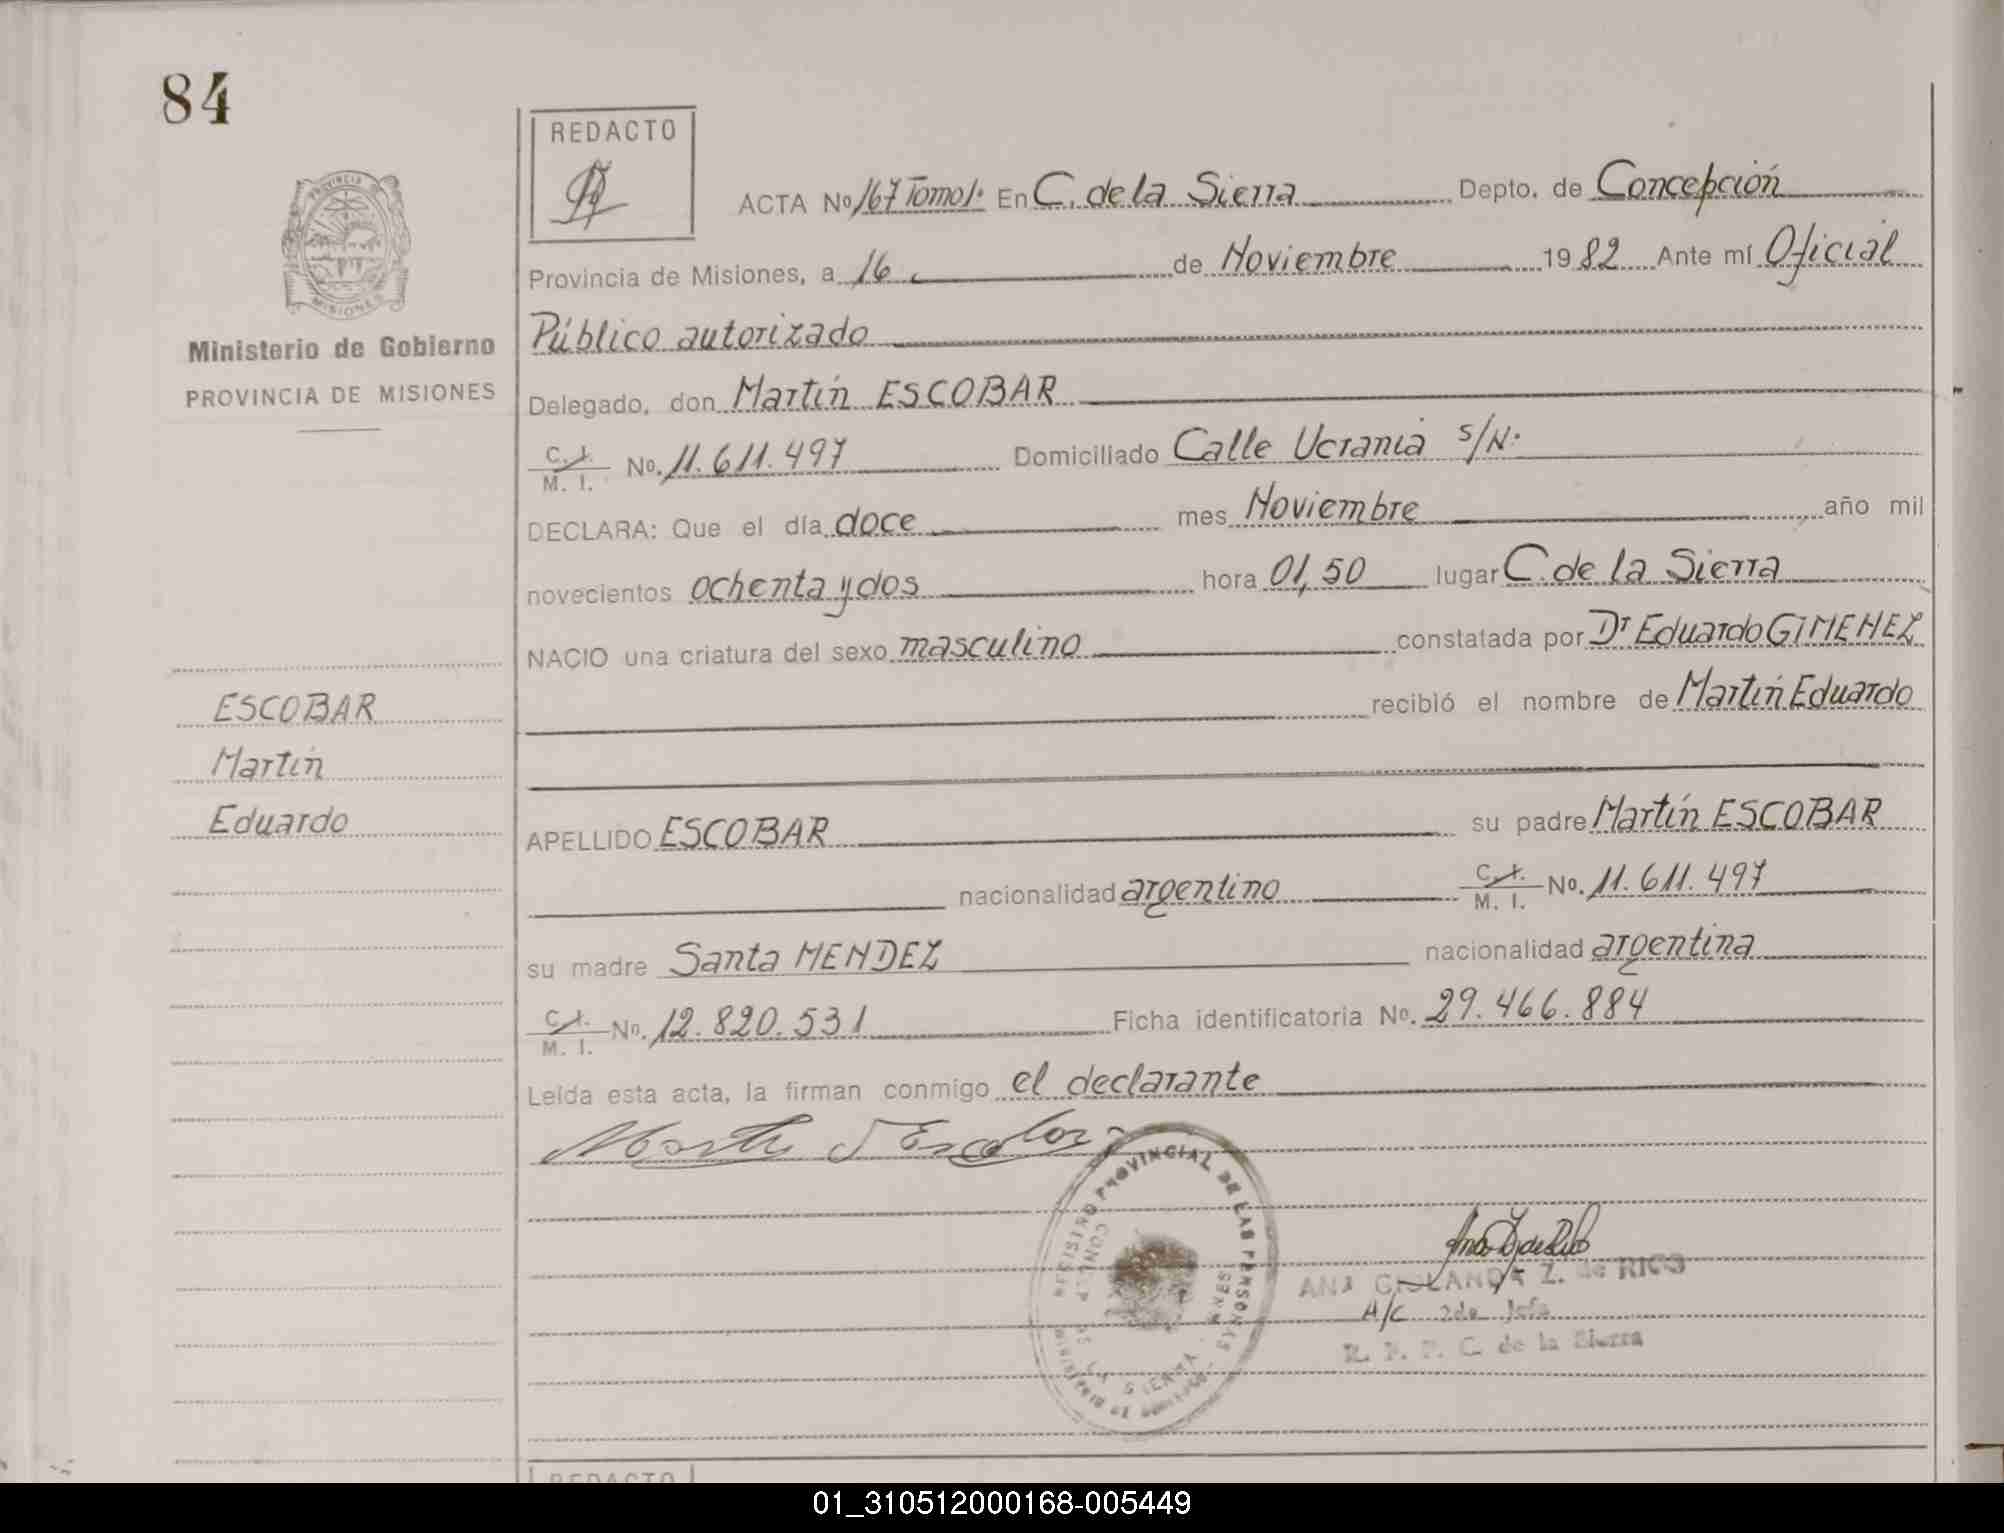 84
REDACTO
ACTA No 167 Tomo 1º En C. de la Sierra Depto. de Concepción
Provincia de Misiones, a 16 de Noviembre 1982 Ante mí Oficial
Público autorizado
Delegado, don Martín ESCOBAR
C. I. M. I. No. 11.611.497 Domiciliado Calle Ucrania S/N.
DECLARA: Que el día doce mes Noviembre año mil
novecientos ochenta y dos hora 01,50 lugar C. de la Sierra
NACIO una criatura del sexo masculino constatada por Dr Eduardo GIMENEZ
recibió el nombre de Martín Eduardo
APELLIDO ESCOBAR su padre Martín ESCOBAR
nacionalidad argentino C. I. M. I. No. 11.611.497
su madre Santa MENDEZ nacionalidad argentina
C. I. M. I. No. 12.820.531 Ficha identificatoria No. 29.466.884
Leída esta acta, la firman conmigo el declarante
PROVINCIA DE
MISIONES
Ministerio de Gobierno
PROVINCIA DE MISIONES
ESCOBAR
Martín
Eduardo
REGISTRO PROVINCIAL DE LAS PERSONAS
SIERRA
ANA Z. de RIOS
A/C 2da. Jefa
R. P. P. C. de la Sierra
REDACTO
01_310512000168-005449